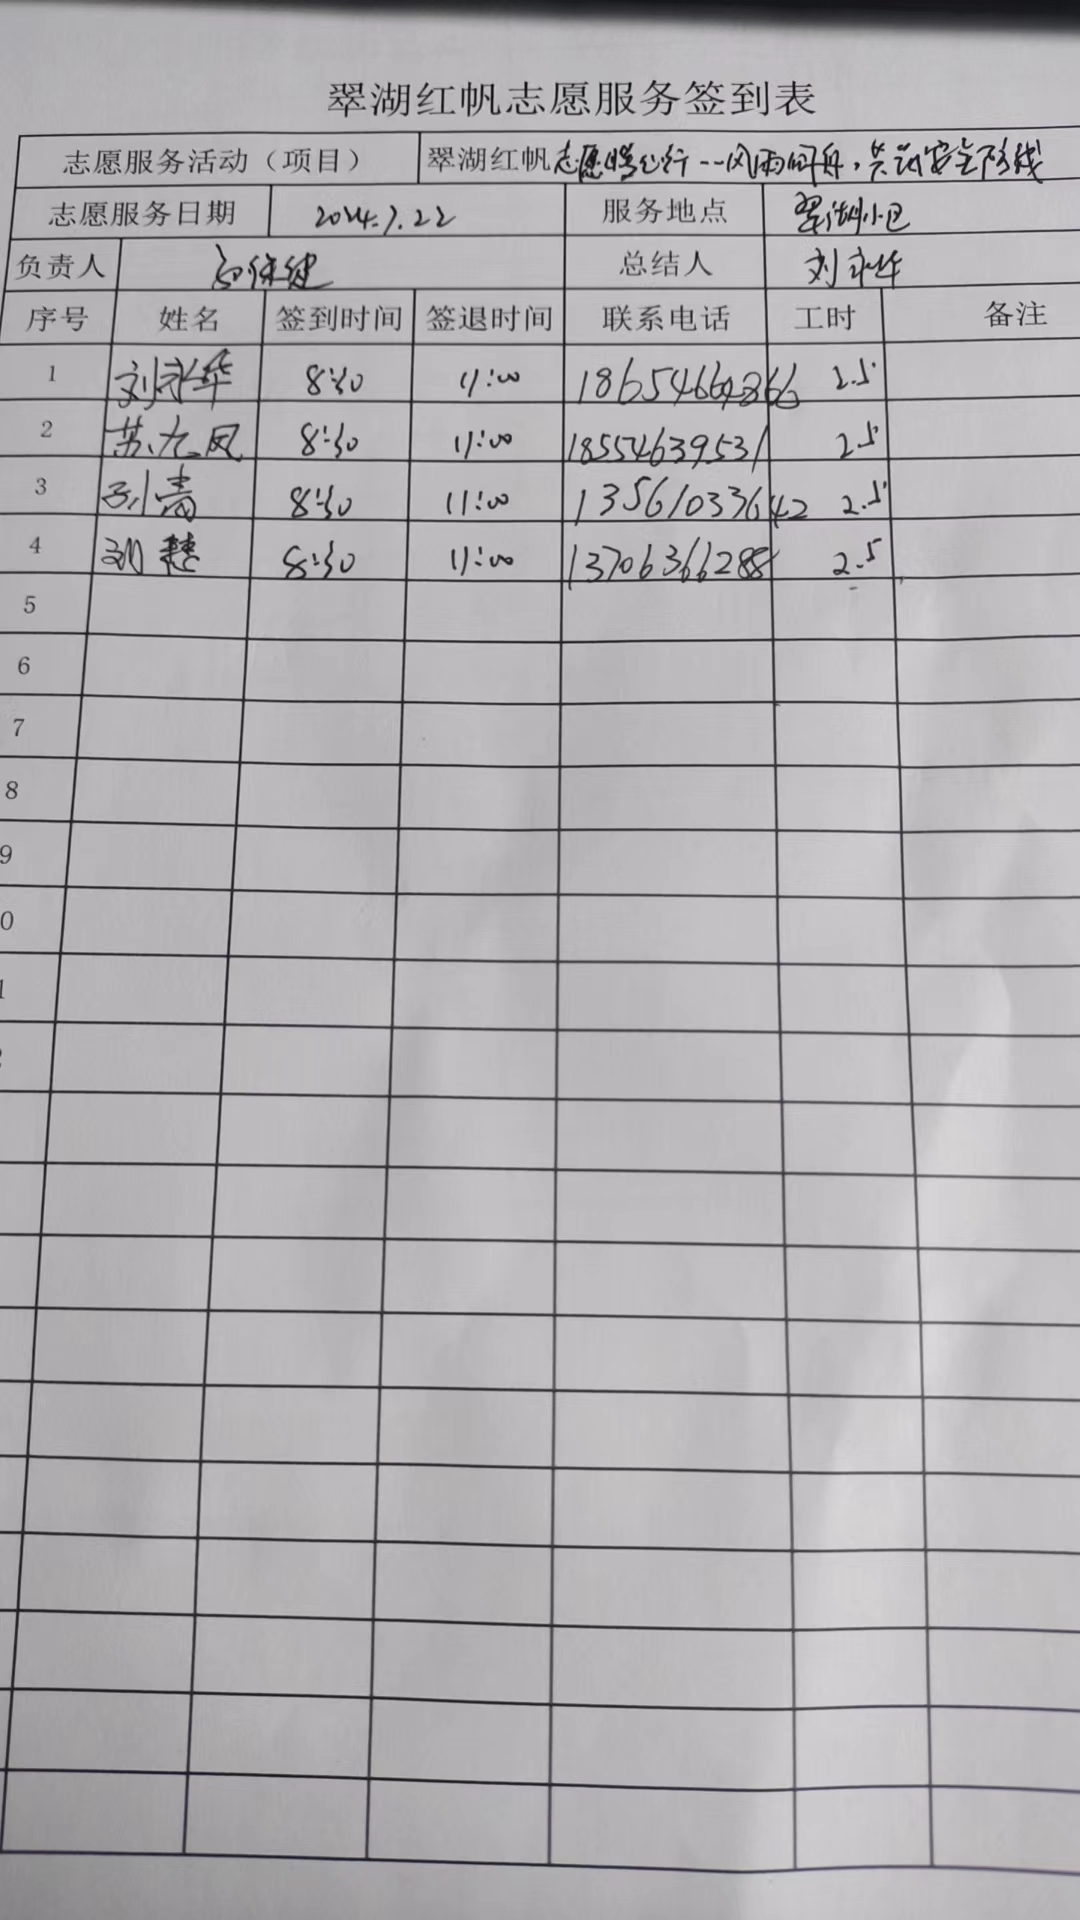 翠湖红帆志愿服务签到表
志愿服务活动（项目） 翠湖红帆志愿 行--风雨同舟，共筑安全防线
志愿服务日期 2024.7.22 服务地点 翠湖小区
负责人 总结人 刘永华
序号 姓名 签到时间 签退时间 联系电话 工时 备注
1 刘永华 8:30 11:00 2.5
2 苏九凤 8:30 11:00 18554639531 2.5
3 孙青 8:30 11:00 13561033642 2.5
4 8:30 11:00 13706366288 2.5
5
6
7
8
9
0
1